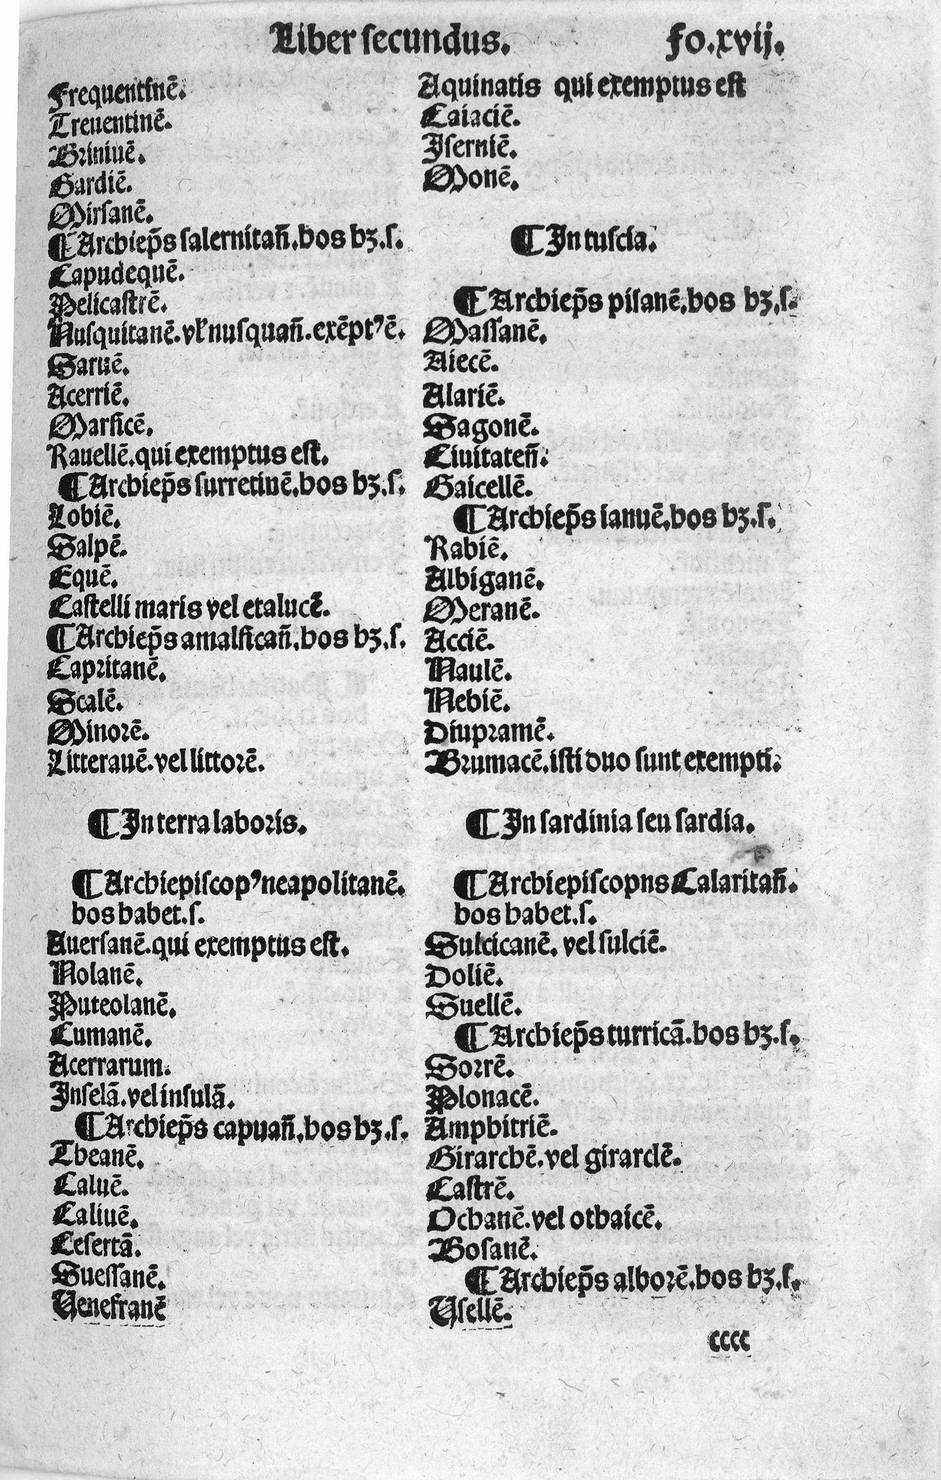 Liber secundus. fo.xvij.
Frequentinē.
Treuentinē.
Briniuē.
Gardiē.
Mirsanē.
¶Archiep̄s salernitan̄.hos hꝫ.s.
Capudequē.
Pelicastrē.
Nusquitanē.vl'nusquan̄.exēpt'ē.
Saruē.
Acerriē.
Marsicē.
Rauellē.qui exemptus est.
¶Archiep̄s surretinē.hos hꝫ.s.
Lobiē.
Salpē.
Equē.
Castelli maris vel etalucē.
¶Archiep̄s amalfican̄.hos hꝫ.s.
Capritanē.
Scalē.
Minorē.
Litterauē.vel littorē.
¶In terra laboris.
¶Archiepiscop'neapolitanē.
hos habet.s.
Auersanē.qui exemptus est.
Nolanē.
Puteolanē.
Cumanē.
Acerrarum.
Inselā.vel insulā.
¶Archiep̄s capuan̄.hos hꝫ.s.
Theanē.
Caluē.
Caliuē.
Cesertā.
Suessanē.
Venefranē
Aquinatis qui exemptus est
Caiaciē.
Iserniē.
Monē.
¶In tuscia.
¶Archiep̄s pisanē.hos hꝫ.s.
Massanē.
Aiecē.
Alariē.
Sagonē.
Ciuitaten̄.
Gaicellē.
¶Archiep̄s ianuē.hos hꝫ.s.
Rabiē.
Albiganē.
Meranē.
Acciē.
Naulē.
Nebiē.
Diupramē.
Brumacē.isti duo sunt exempti.
¶In sardinia seu sardia.
¶Archiepiscopus Calaritan̄.
hos habet.s.
Sulcicanē. vel sulciē.
Doliē.
Suellē.
¶Archiep̄s turricā.hos hꝫ.s.
Sorrē.
Plonacē.
Amphitriē.
Girarchē.vel girarclē.
Castrē.
Ochanē.vel othaicē.
Bosanē.
¶Archiep̄s alborē.hos hꝫ.s.
Vsellē.
cccc